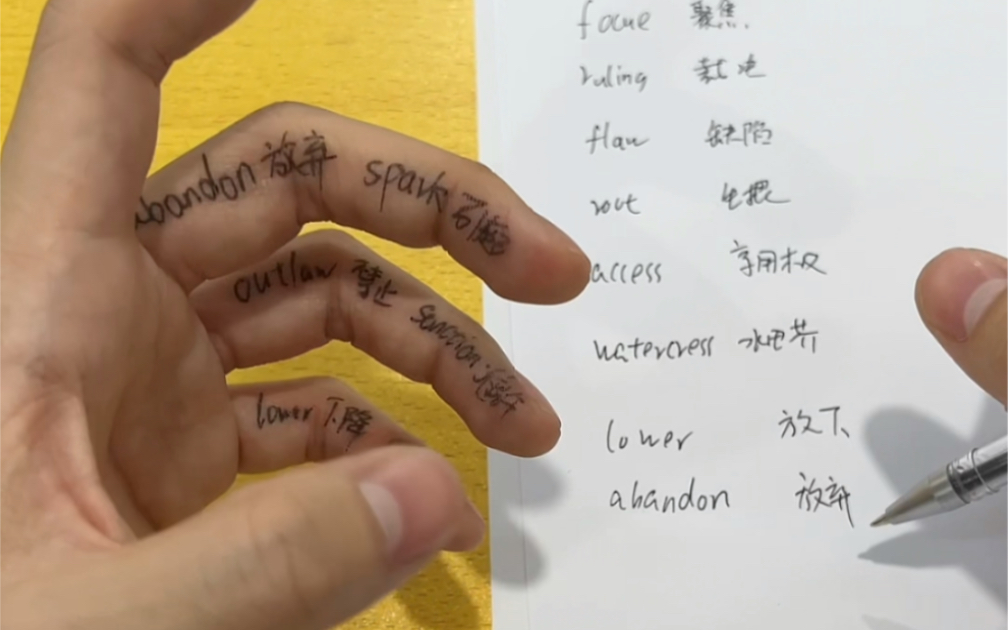 abandon 放弃 spark 引燃
outlaw 禁止 sanction 准许
lower 下降
focue 聚焦
ruling 裁定
flaw 缺陷
rout
access 享用权
watercress 水田芥
lower 放下
abandon 放弃